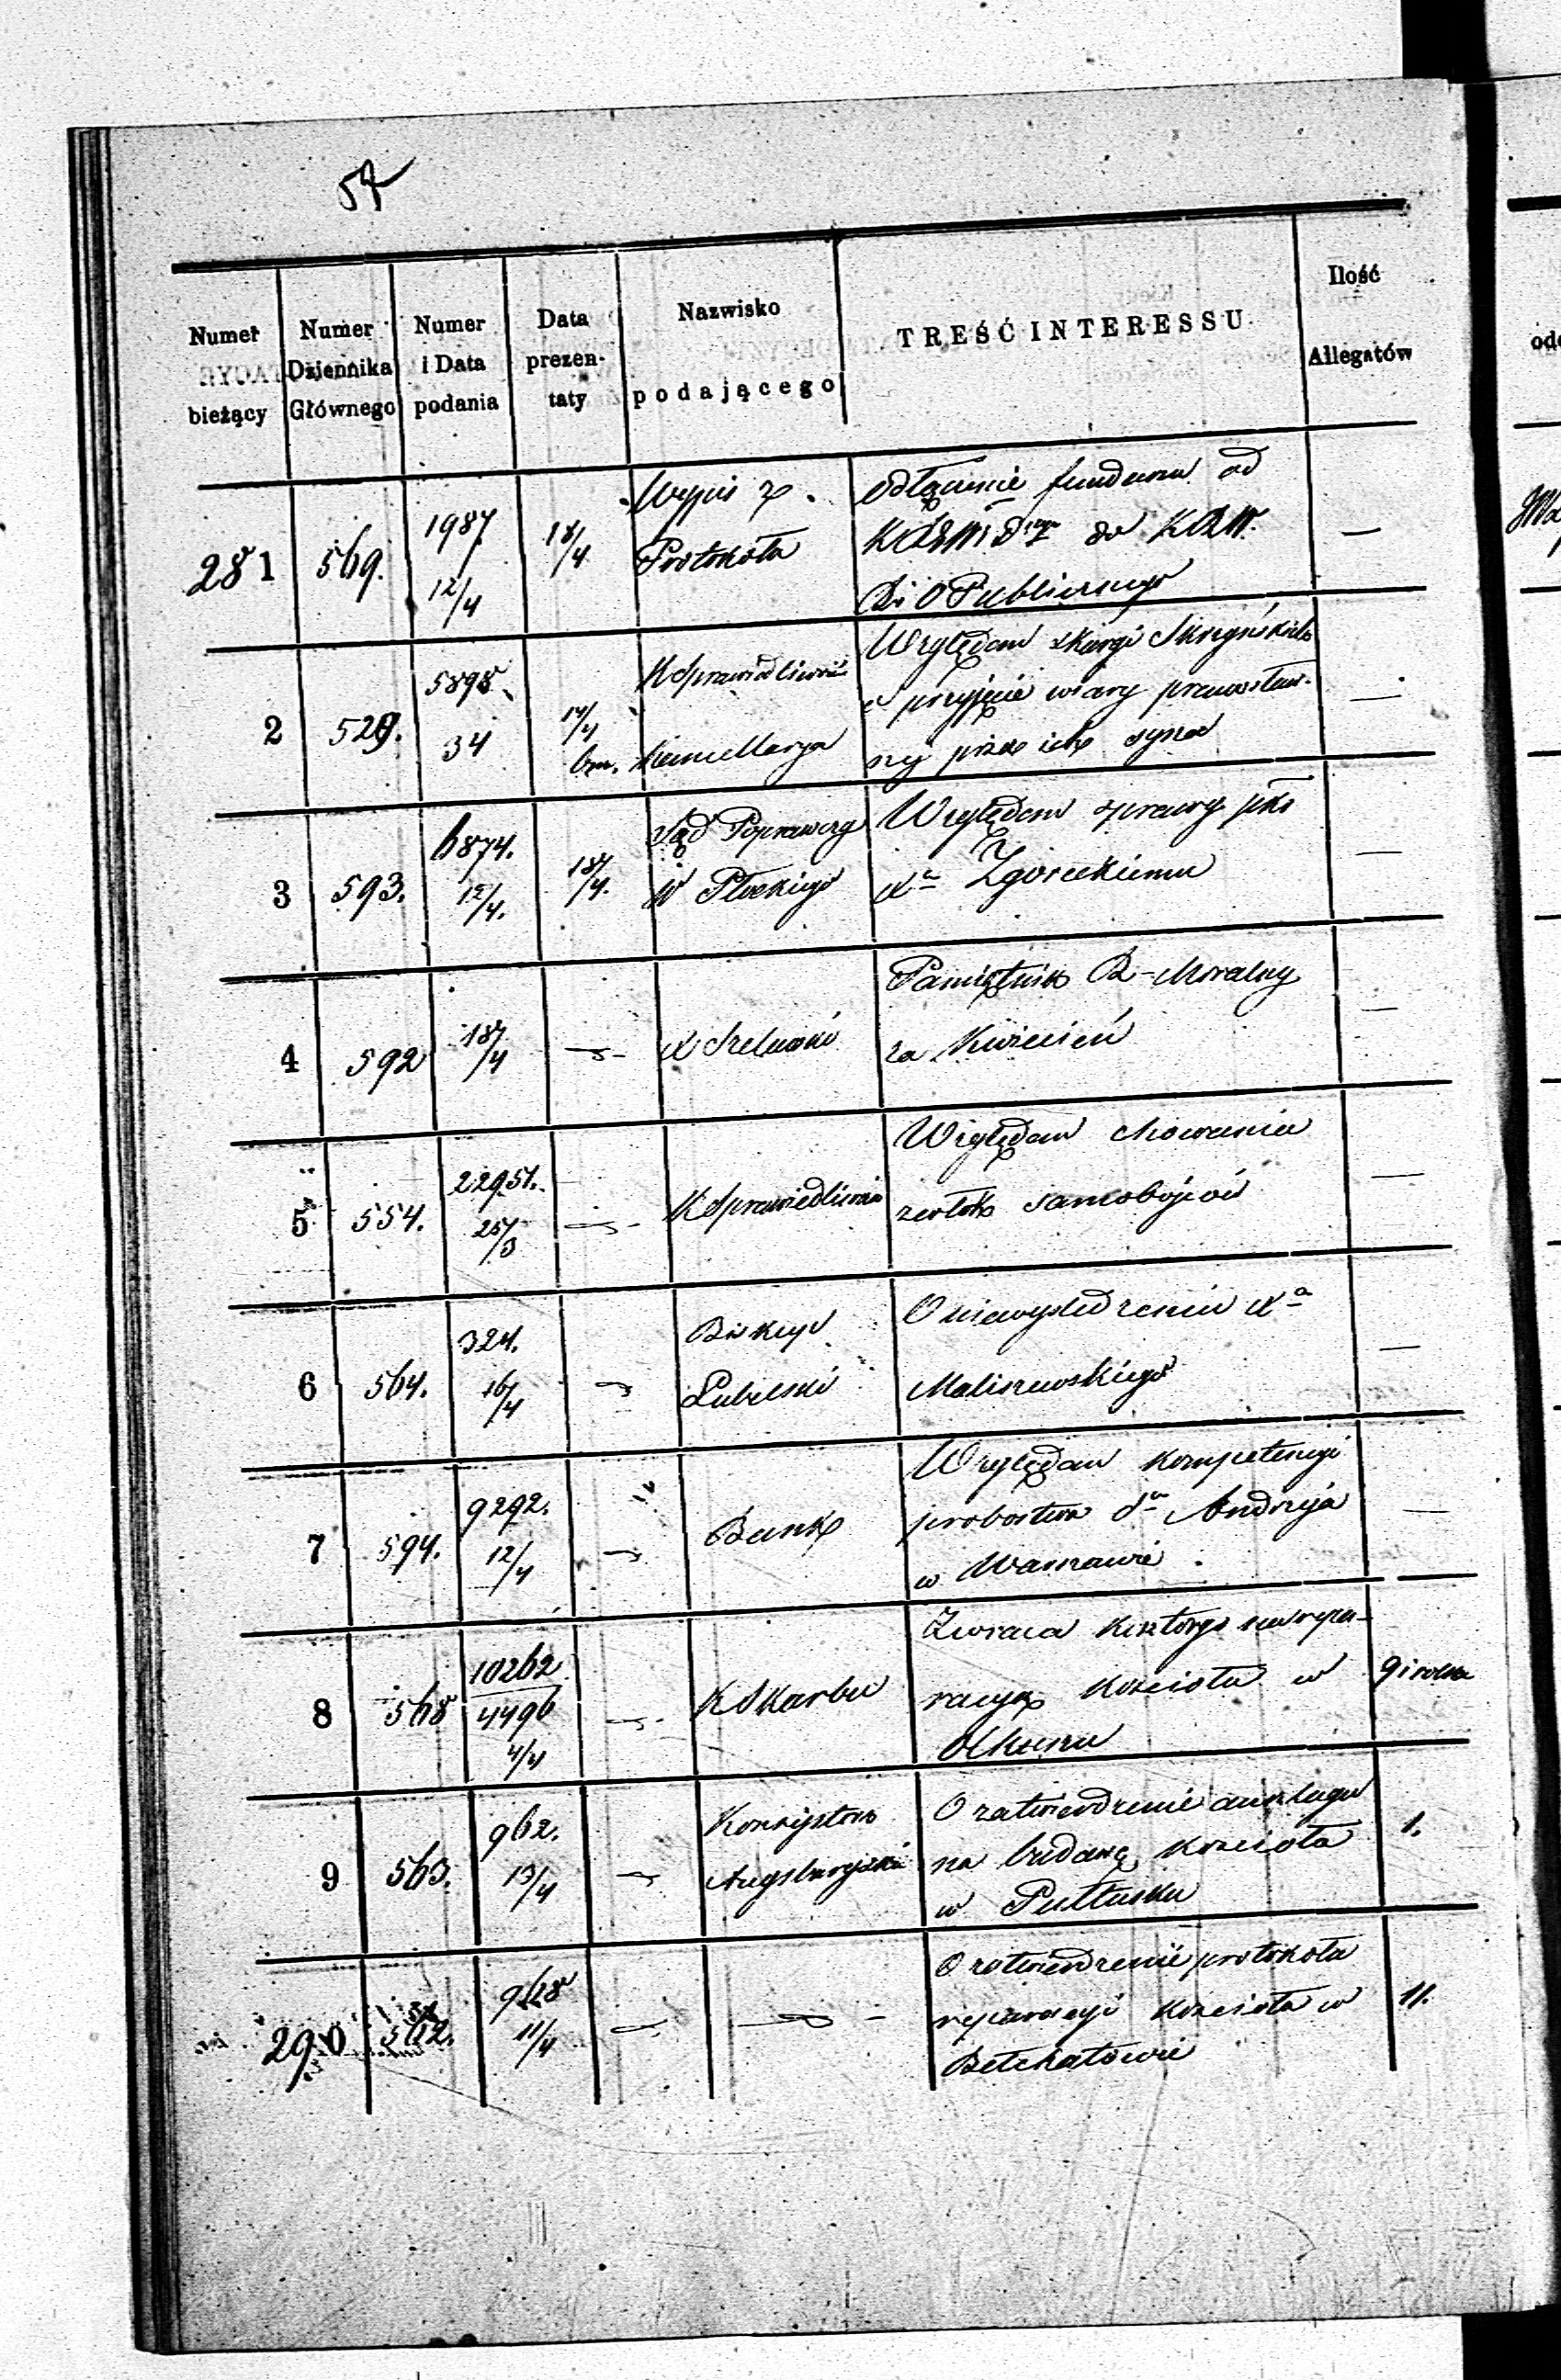 57
Numer bieżący
Numer Dziennika Głównego
Numer i Data podania
Data prezentaty
Nazwisko podającego
TREŚĆ INTERESSU
Ilość Allegatów
281 569. 1987 12/4 18/4 Wypis z Protokóła
odłączenie funduszu od
do
Publicznego
—
2 529. 5898 34 14/4 KSprawiedliwości
Kancellarya
Względem skargi Skrzyńskich
o przyjęcie wiary prawosław-
nej przez ich syna
—
3 593. 6874. 12/4. 18/4. Sąd Poprawczy
W Płockiego
Względem sprawy pko
Xa Zgoreckiemu
—
4 592 18/4 X
Pamiętnik R-Moralny
za Kwiecień
—
5 554. 22951. 25/3 KSprawiedliwości
Względem chowania
zwłok samobójców
—
6 564. 324. 16/4 Biskup
Lubelski
O niewyśledzeniu Xa
Maliszewskiego
—
7 594. 9292. 12/4 Bank
Względem kompetencyi
probostwa Sa Andrzeja
w Warszawie
—
8 568 10262 4496 4/4 KSkarbu
Zwraca kosztorys na repa-
racyą kościoła w
Olkuszu
9
9 563. 962. 13/4 Konsystorz
Augsburgski
O zatwierdzenie anszlagu
na budowę kościoła
w Pułtusku
1.
290 562. 11/4
O zatwierdzenie protokóła
reparacyi kościoła w
Bełchatowie
11.